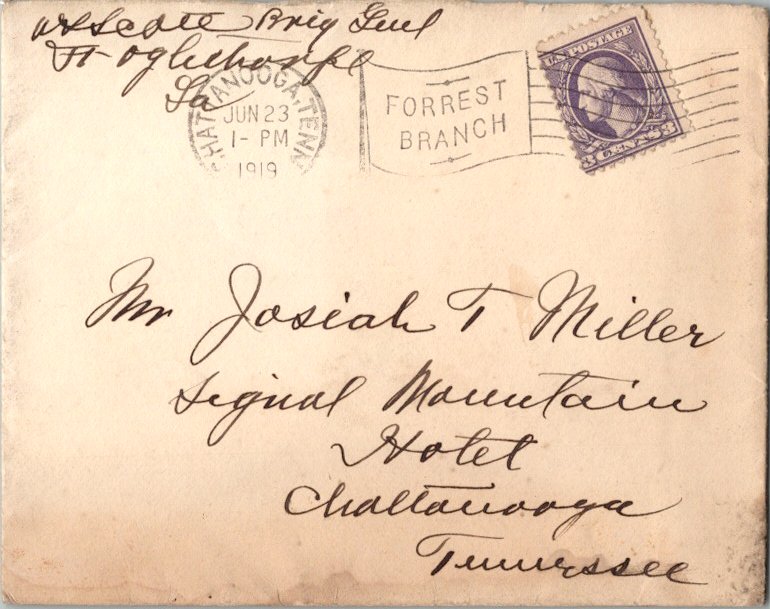 W S Scott Brig Genl
Ft Oglethorpe
Ga
CHATTANOOGA, TENN.
JUN 23
1 - PM
1919
FORREST
BRANCH
U.S. POSTAGE
3 CENTS 3
Mr Josiah T Miller
Signal Mountain
Hotel
Chattanooga
Tennessee